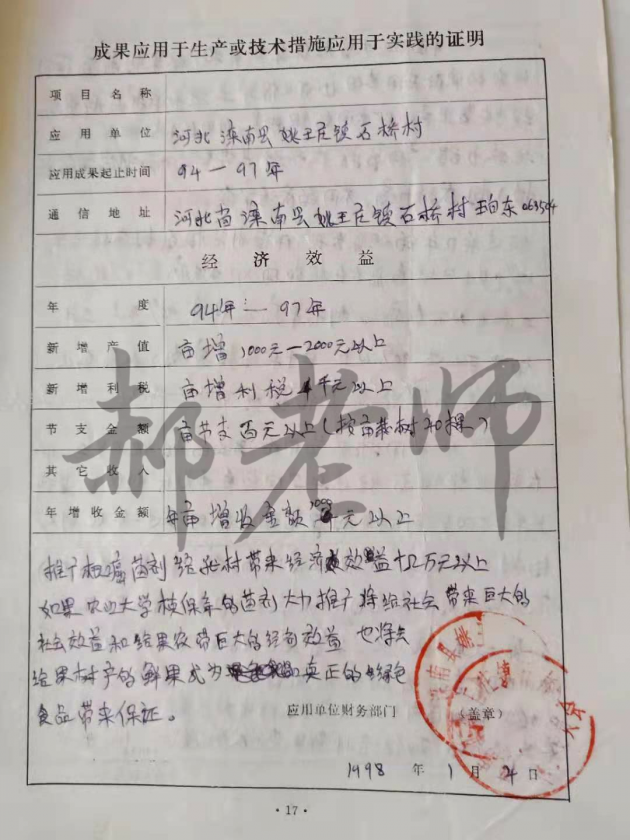 成果应用于生产或技术措施应用于实践的证明
项目名称
应用单位 河北滦南县姚王庄镇石桥村
应用成果起止时间 94—97年
通信地址 河北省滦南县姚王庄镇石桥村 东 063504
经济效益
年度 94年—97年
新增产值 亩增1000元—2000元以上
新增利税 亩增利税 千元以上
节支金额 亩节支百元以上(按亩栽树 棵)
其它收入
年增收金额 年亩增收金额1000元以上
郝老师
推广根癌菌剂给我村带来经济效益 万元以上
如果农业大学植保系的菌剂大力推广将给社会带来巨大的
社会效益和给果农带巨大的经济效益 也将会
给果树产的鲜果成为 真正的绿色
食品带来保证。
应用单位财务部门 (盖章)
1998年1月4日
·17·